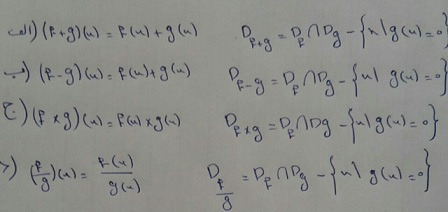 الف) (f+g)(x) = f(x) + g(x)    D_{f+g} = D_f ∩ D_g - {x | g(x) = 0}
ب) (f-g)(x) = f(x) + g(x)    D_{f-g} = D_f ∩ D_g - {x | g(x) = 0}
ج) (f×g)(x) = f(x) × g(x)    D_{f×g} = D_f ∩ D_g - {x | g(x) = 0}
د) (f/g)(x) = f(x)/g(x)    D_{f/g} = D_f ∩ D_g - {x | g(x) = 0}